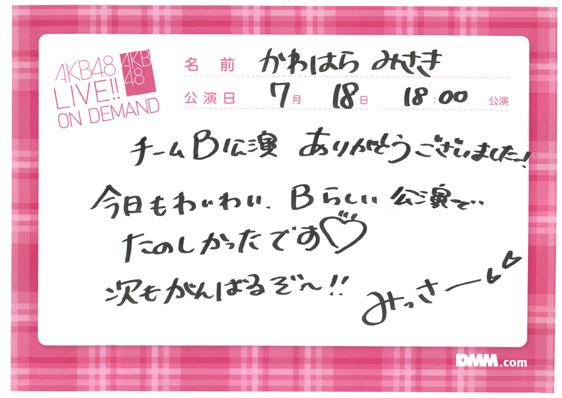 AKB48
LIVE!!
ON DEMAND
AKB
48
名前 かわはら みさき
公演日 7月 18日 18:00 公演
チームB公演 ありがとうございました!
今日もわいわい、Bらしい公演で..
たのしかったです♡
次もがんばるぞ〜!!
みっさー
DMM.com